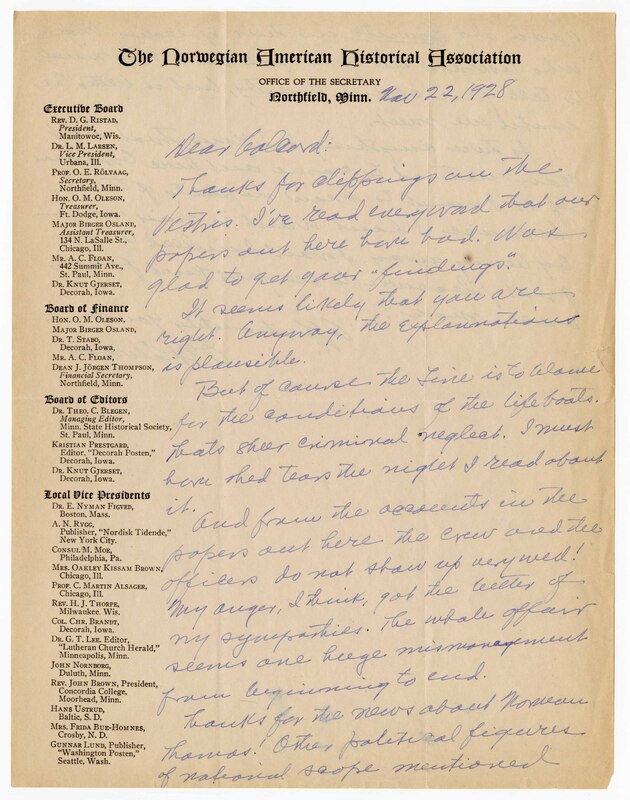 The Norwegian American Historical Association
OFFICE OF THE SECRETARY
Northfield, Minn. Nov 22, 1928
Executive Board
REV. D. G. RISTAD,
President,
Manitowoc, Wis.
DR. L. M. LARSEN,
Vice President,
Urbana, Ill.
PROF. O. E. RÖLVAAG,
Secretary,
Northfield, Minn.
HON. O. M. OLESON,
Treasurer,
Ft. Dodge, Iowa.
MAJOR BIRGER OSLAND,
Assistant Treasurer,
134 N. LaSalle St.,
Chicago, Ill.
MR. A. C. FLOAN,
442 Summit Ave.,
St. Paul, Minn.
DR. KNUT GJERSET,
Decorah, Iowa.
Board of Finance
HON. O. M. OLESON,
MAJOR BIRGER OSLAND,
DR. T. STABO,
Decorah, Iowa.
MR. A. C. FLOAN,
DEAN J. JÖRGEN THOMPSON,
Financial Secretary,
Northfield, Minn.
Board of Editors
DR. THEO. C. BLEGEN,
Managing Editor,
Minn. State Historical Society,
St. Paul, Minn.
KRISTIAN PRESTGARD,
Editor, "Decorah Posten,"
Decorah, Iowa.
DR. KNUT GJERSET,
Decorah, Iowa.
Local Vice Presidents
DR. E. NYMAN FIGVED,
Boston, Mass.
A. N. RYGG,
Publisher, "Nordisk Tidende,"
New York City.
CONSUL M. MOE,
Philadelphia, Pa.
MRS. OAKLEY KISSAM BROWN,
Chicago, Ill.
PROF. C. MARTIN ALSAGER,
Chicago, Ill.
REV. H. J. THORPE,
Milwaukee, Wis.
COL. CHR. BRANDT,
Decorah, Iowa.
DR. G. T. LEE, Editor,
"Lutheran Church Herald,"
Minneapolis, Minn.
JOHN NORNBORG,
Duluth, Minn.
REV. JOHN BROWN, President,
Concordia College,
Moorhead, Minn.
HANS USTRUD,
Baltic, S. D.
MRS. FRIDA BUE-HOMNES,
Crosby, N. D.
GUNNAR LUND, Publisher,
"Washington Posten,"
Seattle, Wash.
Dear Colcord:
Thanks for clippings on the
Vestris. I've read every word that our
papers out here have had. Was
glad to get your "findings".
It seems likely that you are
right. Anyway, the explannations
is plausible.
But of course the Line is to blame
for the conditions of the lifeboats.
thats sheer criminal neglect. I must
have shed tears the night I read about
it.
And from the accounts in the
papers out here the crew and the
officers do not show up very well!
My anger, I think, got the better of
my sympathies. The whole affair
seems one huge mismanagement
from beginning to end.
Thanks for the news about Norman
Thomas! Other political figures
of national scope mentioned